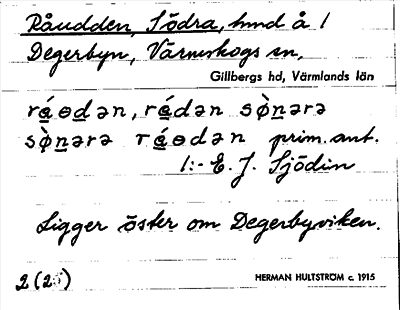 Råudden, Södra, hmd å 1
Degerbyn, Värmskogs sn,
Gillbergs hd, Värmlands län
rá̱ɵdən, rá̱dən sò̱nərə
sò̱nərə rá̱ɵdən prim. ant.
1:- E. J. Sjödin
Ligger öster om Degerbyviken.
2 (25)
HERMAN HULTSTRÖM c. 1915